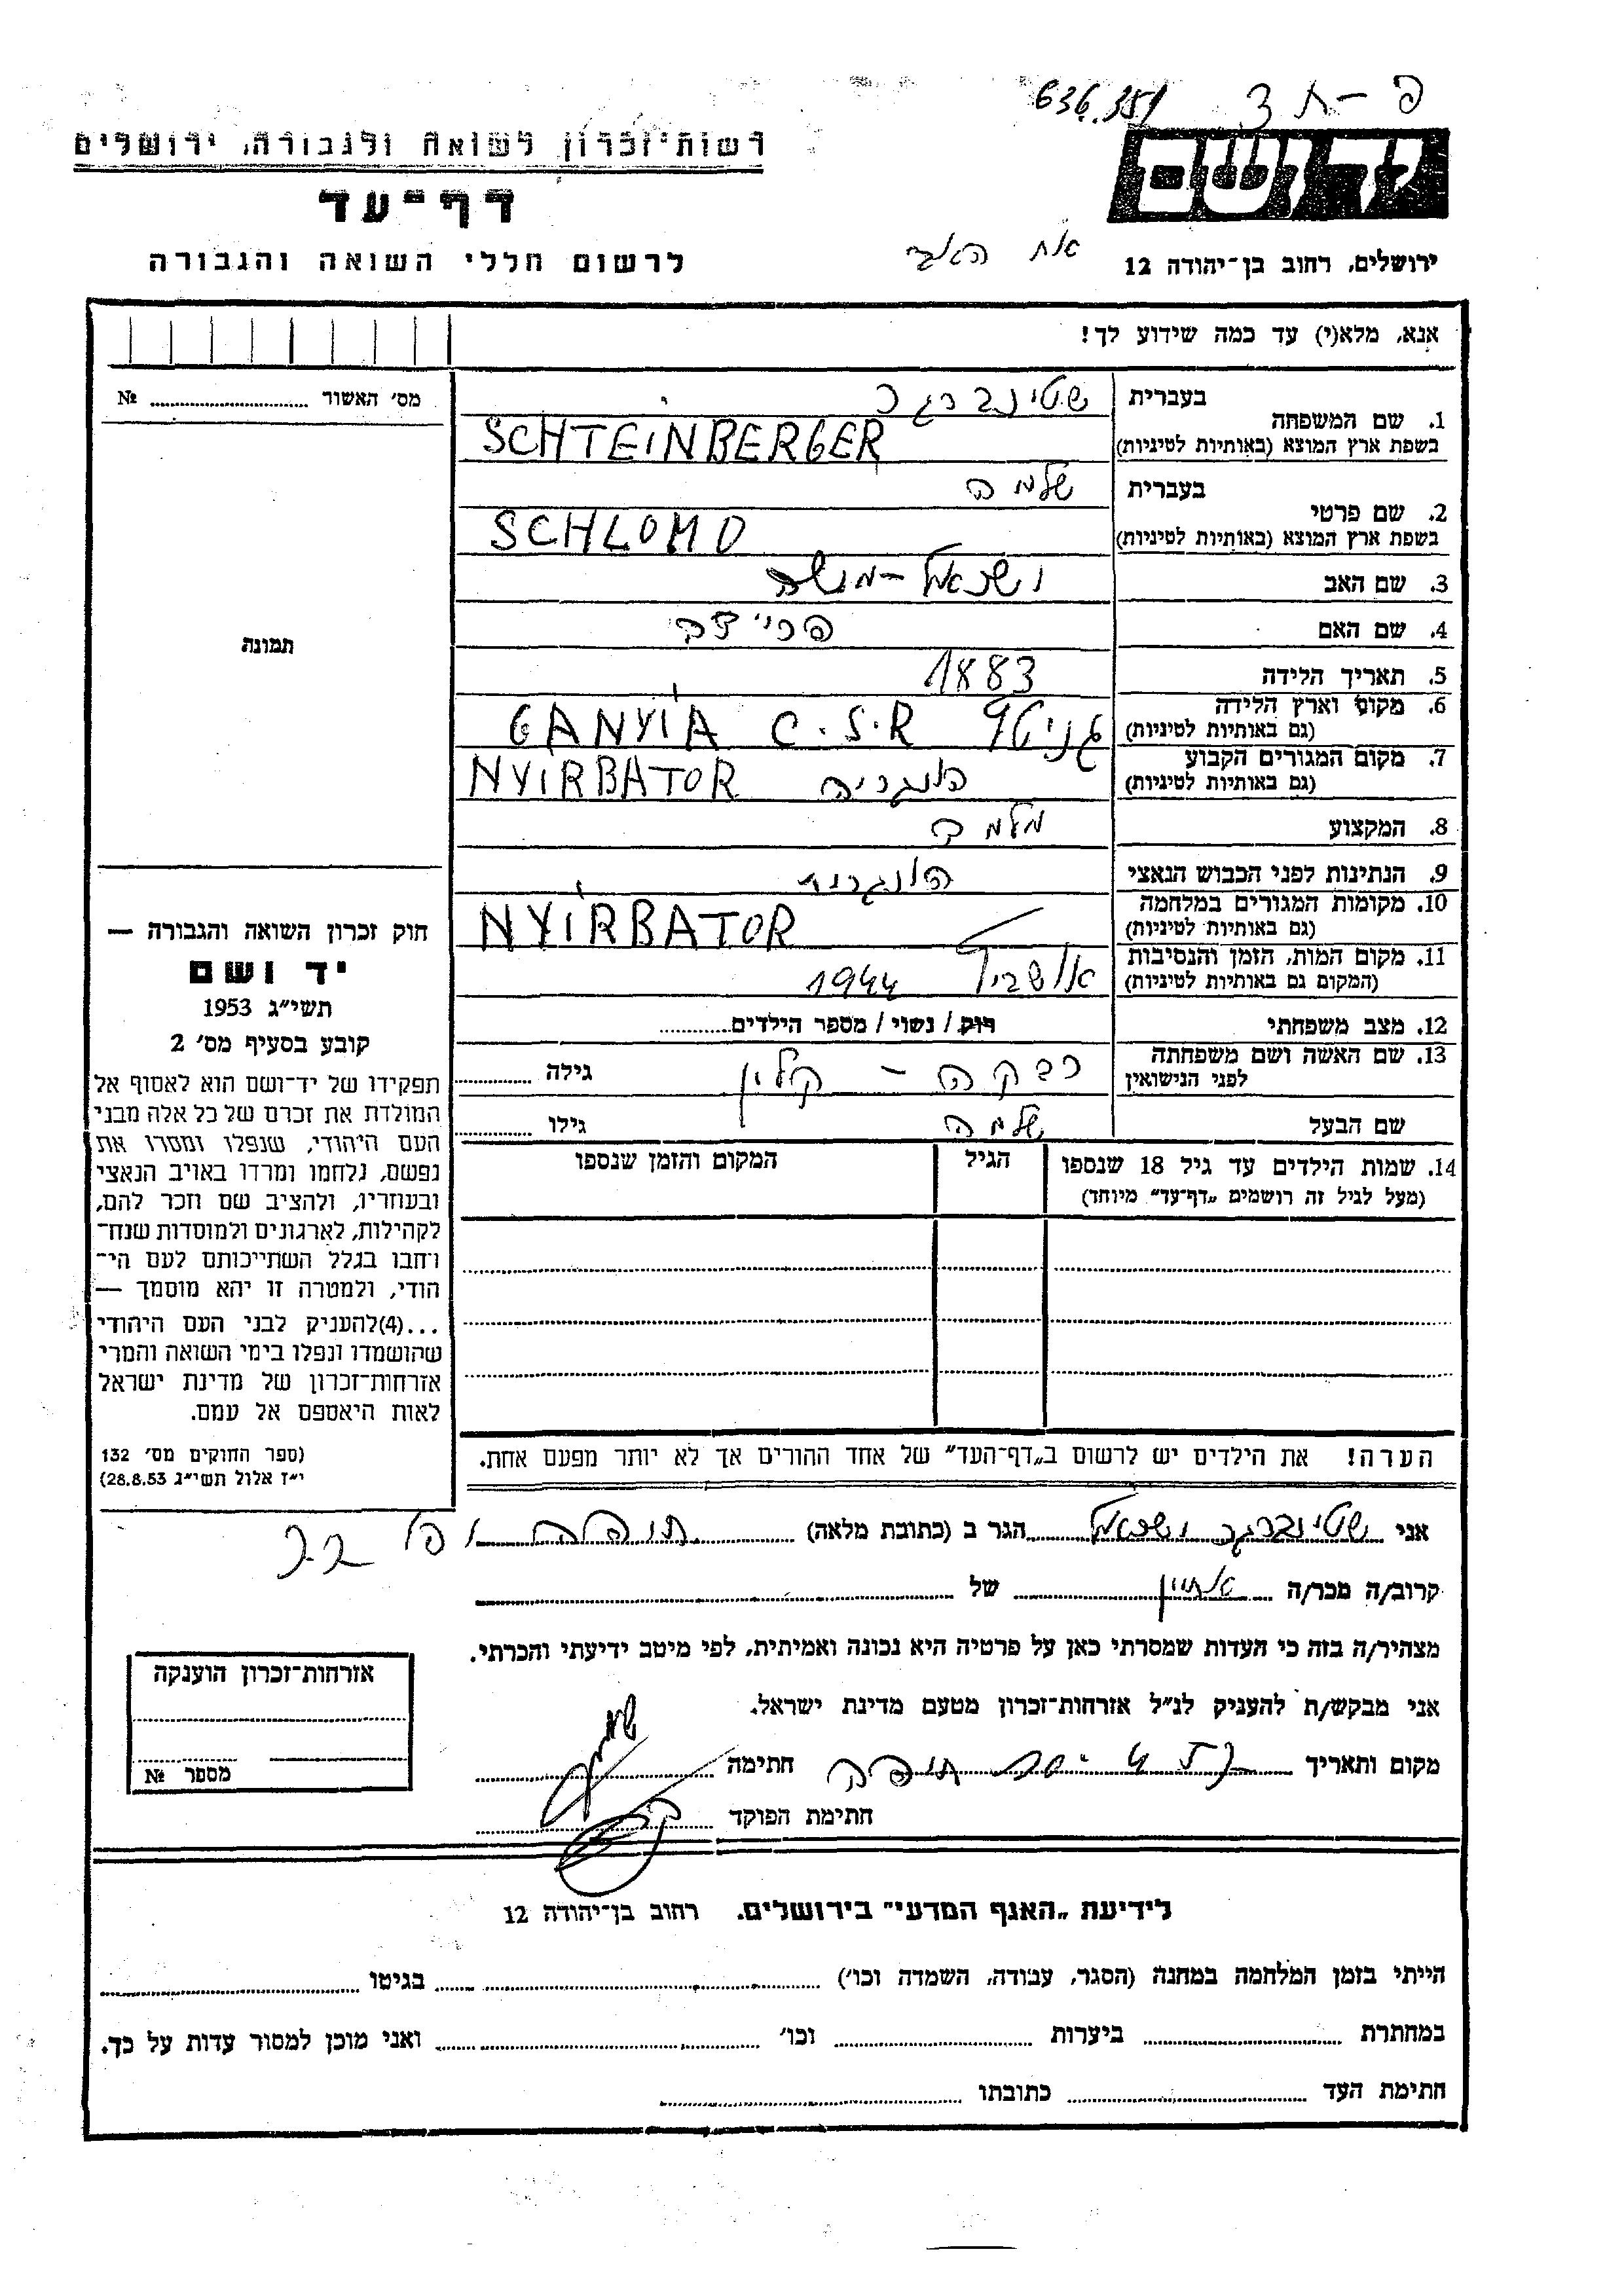 636.351
רשות־זכרון לשואה ולגבורה, ירושלים
דף־עד
לרשום חללי השואה והגבורה
ירושלים, רחוב בן־יהודה 12
אנא, מלא(י) עד כמה שידוע לך!
מס׳ האשור № ........
תמונה
1. שם המשפחה בעברית שטינברגר
בשפת ארץ המוצא (באותיות לטיניות) SCHTEINBERGER
2. שם פרטי בעברית שלמה
בשפת ארץ המוצא (באותיות לטיניות) SCHLOMO
3. שם האב ישראל-משה
4. שם האם
5. תאריך הלידה 1883
6. מקום וארץ הלידה C.S.R GANYIA
(גם באותיות לטיניות)
7. מקום המגורים הקבוע הונגריה NYIRBATOR
(גם באותיות לטיניות)
8. המקצוע מלמד
9. הנתינות לפני הכבוש הנאצי הונגרית
10. מקומות המגורים במלחמה NYIRBATOR
(גם באותיות לטיניות)
11. מקום המות, הזמן והנסיבות אושביץ 1944
(המקום גם באותיות לטיניות)
12. מצב משפחתי רוק / נשוי / מספר הילדים........
13. שם האשה ושם משפחתה רבקה - קליין גילה ........
לפני הנישואין
שם הבעל שלמה גילו ........
14. שמות הילדים עד גיל 18 שנספו הגיל המקום והזמן שנספו
(מעל לגיל זה רושמים „דף־עד״ מיוחד)
חוק זכרון השואה והגבורה —
יד ושם
תשי״ג 1953
קובע בסעיף מס׳ 2
תפקידו של יד־ושם הוא לאסוף אל
המולדת את זכרם של כל אלה מבני
העם היהודי, שנפלו ומסרו את
נפשם, נלחמו ומרדו באויב הנאצי
ובעוזריו, ולהציב שם וזכר להם,
לקהילות, לארגונים ולמוסדות שנח־
רחבו בגלל השתייכותם לעם הי־
הודי, ולמטרה זו יהא מוסמך —
...(4)להעניק לבני העם היהודי
שהושמדו ונפלו בימי השואה והמרי
אזרחות־זכרון של מדינת ישראל
לאות היאספם אל עמם.
(ספר החוקים מס׳ 132
י״ז אלול תשי״ג 28.8.53)
הערה! את הילדים יש לרשום ב„דף־העד״ של אחד ההורים אך לא יותר מפעם אחת.
אני שטינברגר ישראל הגר ב (כתובת מלאה)
קרוב/ה מכר/ה של
מצהיר/ה בזה כי העדות שמסרתי כאן על פרטיה היא נכונה ואמיתית, לפי מיטב ידיעתי והכרתי.
אני מבקש/ת להעניק לנ״ל אזרחות־זכרון מטעם מדינת ישראל.
מקום ותאריך חתימה
חתימת הפוקד
אזרחות־זכרון הוענקה
מספר №
לידיעת „האגף המדעי״ בירושלים, רחוב בן־יהודה 12
הייתי בזמן המלחמה במחנה (הסגר, עבודה, השמדה וכו׳) ........ בגיטו ........
במחתרת ........ ביערות ........ וכו׳ ........ ואני מוכן למסור עדות על כך.
חתימת העד ........ כתובתו ........